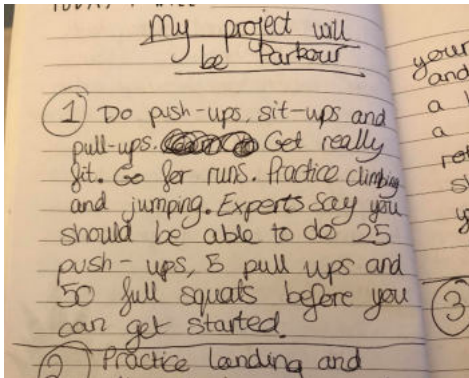 My project will
be Parkour
① Do push-ups, sit-ups and
pull-ups. Get really
fit. Go for runs. Practice climbing
and jumping. Experts say you
should be able to do 25
push-ups, 5 pull ups and
50 full squats before you
can get started.
② Practice landing and
your
and
a
a
③